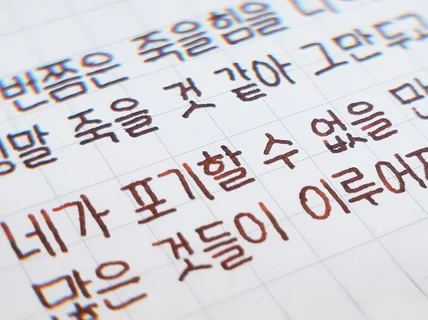 번쯤은 죽을힘을 다
정말 죽을 것 같아 그만두고
네가 포기할 수 없을 만
많은 것들이 이루어져